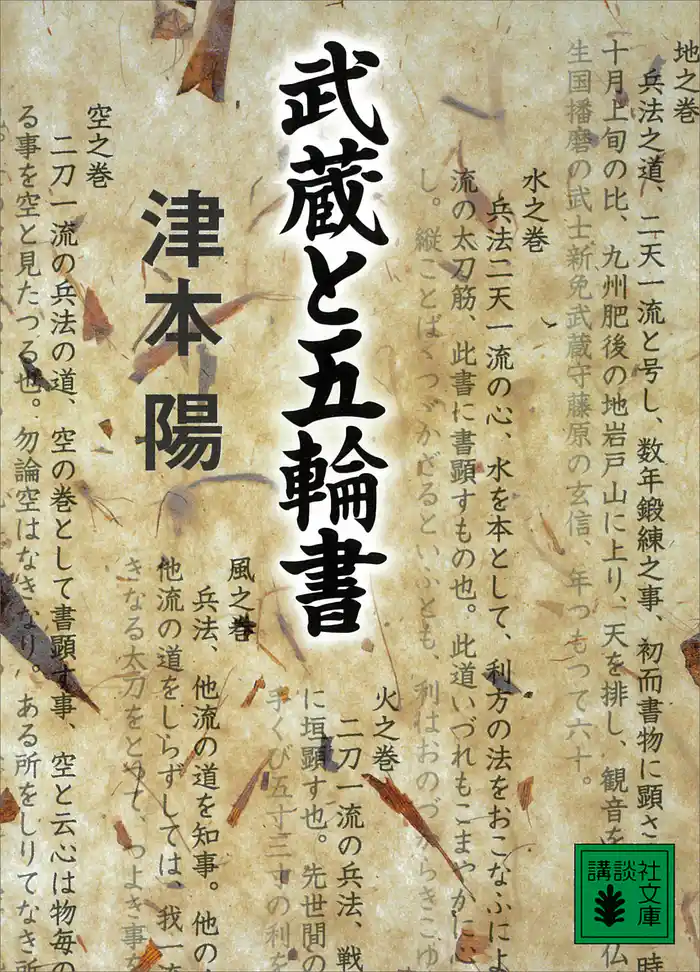 武蔵と五輪書
津本 陽
地之巻
兵法之道、二天一流と号し、数年鍛練之事、初而書物に顕さ
時
十月上旬の比、九州肥後の地岩戸山に上り、天を排し、観音を
仏
生国播磨の武士新免武蔵守藤原の玄信、年つもつて六十。
水之巻
兵法二天一流の心、水を本として、利方の法をおこなふによ
流の太刀筋、此書に書顕すもの也。此道いづれもこまやかに心
し。縦ことばはつづかざるといふとも、利はおのづからきこゆ
火之巻
二刀一流の兵法、戦
に垣顕す也。先世間の
手くび五寸三寸の利を
風之巻
兵法、他流の道を知事。他の、
他流の道をしらずしては、我一流
きなる太刀をとて、つよき事を
空之巻
二刀一流の兵法の道、空の巻として書顕す事、空と云心は物毎の
る事を空と見たつる也。勿論空はなきなり。ある所をしりてなき所
講談社文庫